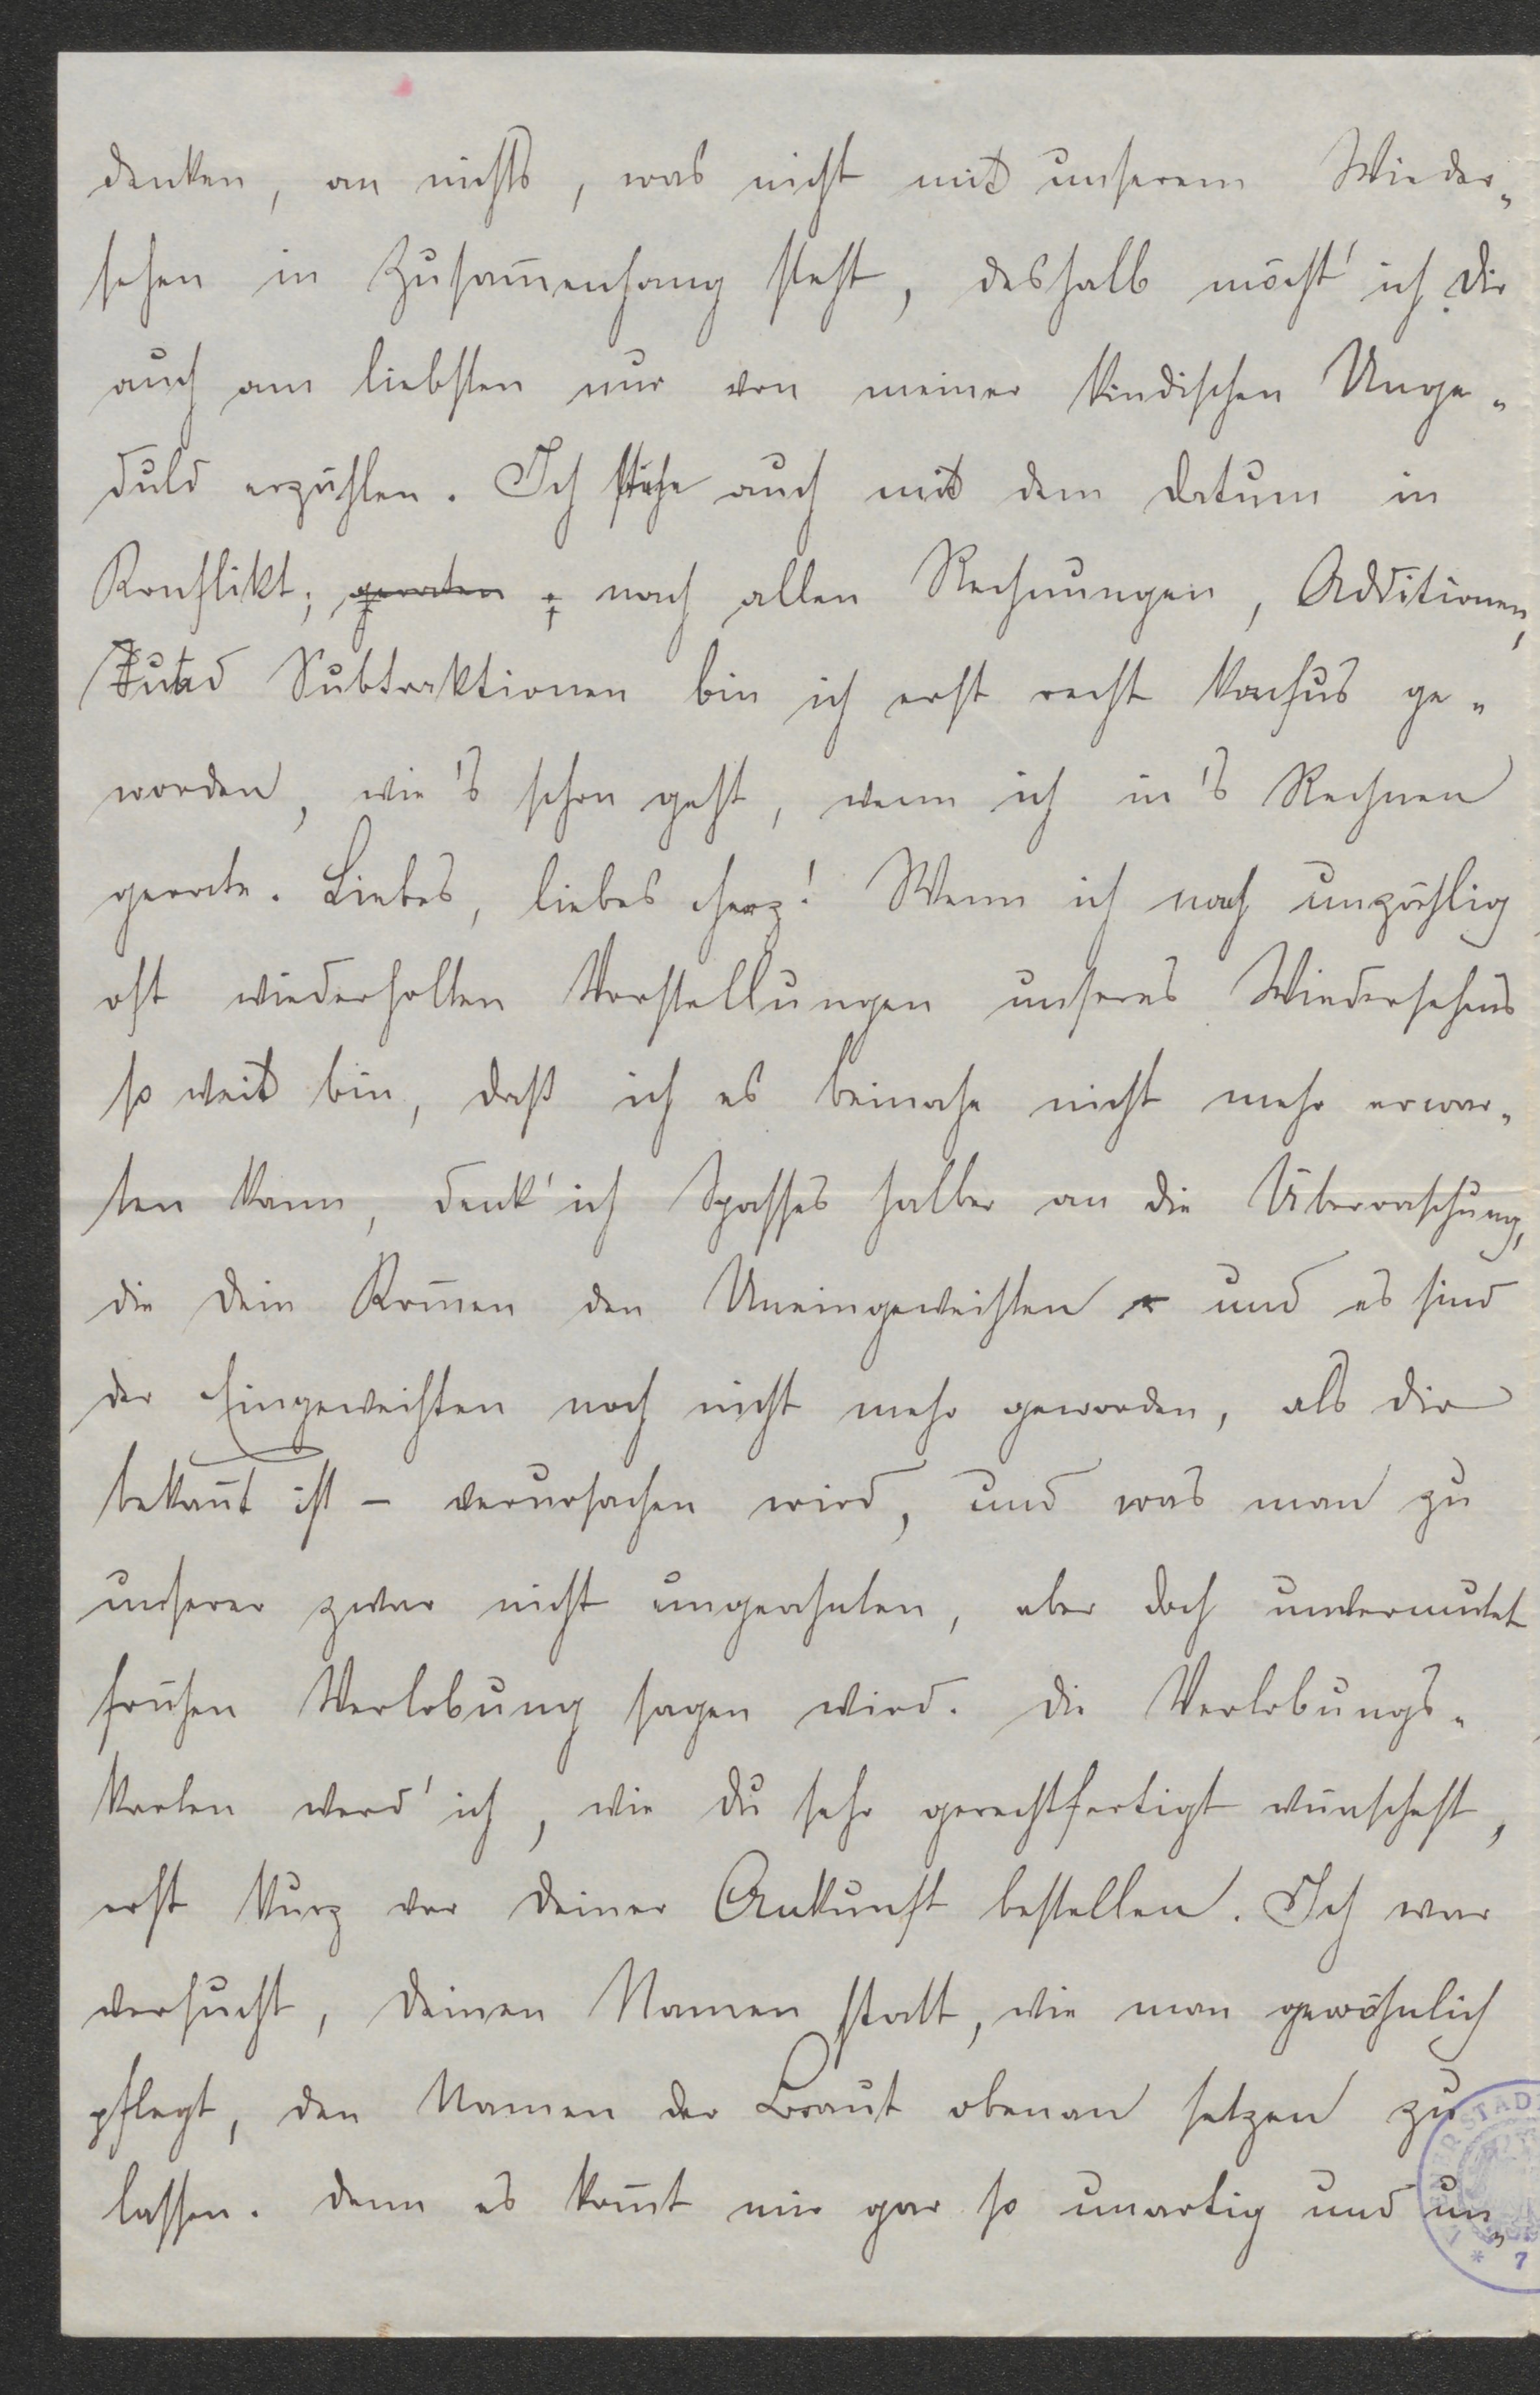 denken, an nichts, was nicht mit unserem Wieder„
sehen in Zusam̅enhang steht, deshalb möcht' ich Dir
auch am liebsten nur von meiner kindischen Unge„
duld erzählen. Ich stehe auch mit dem Datum in
Konflikt; geraten ; nach allen Rechnungen, Additionen,
und Subtraktionen bin ich erst recht konfus ge„
worden, wie's schon geht, wenn ich in's Rechnen
gerate. Liebes, liebes Herz! Wenn ich nach unzählig
oft wiederholten Vorstellungen unseres Wiedersehens
so weit bin, daß ich es beinahe nicht mehr erwar„
ten kann, denk' ich Spasses halber an die Überraschung,
die Dein Kom̅en den Uneingeweihten – und es sind
der Eingeweihten noch nicht mehr geworden, als Dir
bekan̅t ist – verursachen wird, und was man zu
unserer zwar nicht ungeahnten, aber doch unvermutet
frühen Verlobung sagen wird. Die Verlobungs„
karten werd' ich, wie Du sehr gerechtfertigt wünschest,
erst kurz vor Deiner Ankunft bestellen. Ich war
versucht, Deinen Namen statt, wie man gewöhnlich
pflegt, den Namen der Braut obenan setzen zu
lassen. Denn es kom̅t mir gar so unartig und un„